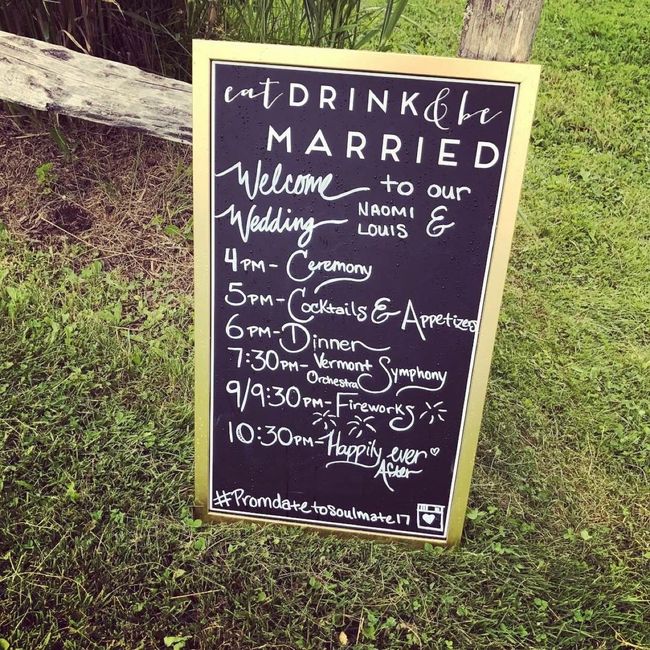 eat DRINK & be
MARRIED
Welcome to our
Wedding NAOMI & LOUIS
4PM - Ceremony
5PM - Cocktails & Appetizers
6PM - Dinner
7:30PM - Vermont Symphony Orchestra
9/9:30PM - Fireworks
10:30PM - Happily ever After
#Promdatetosoulmate17